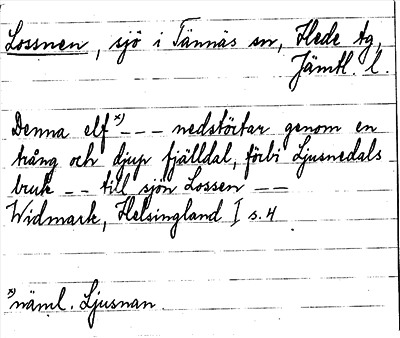 Lossnen, sjö i Tännäs sn, Hede tg,
Jämtl. l.
Denna elf x) - - - nedstörtar genom en
trång och djup fjälldal, förbi Ljusnedals
bruk - - till sjön Lossen - -
Widmark, Helsingland I s. 4
x) näml. Ljusnan